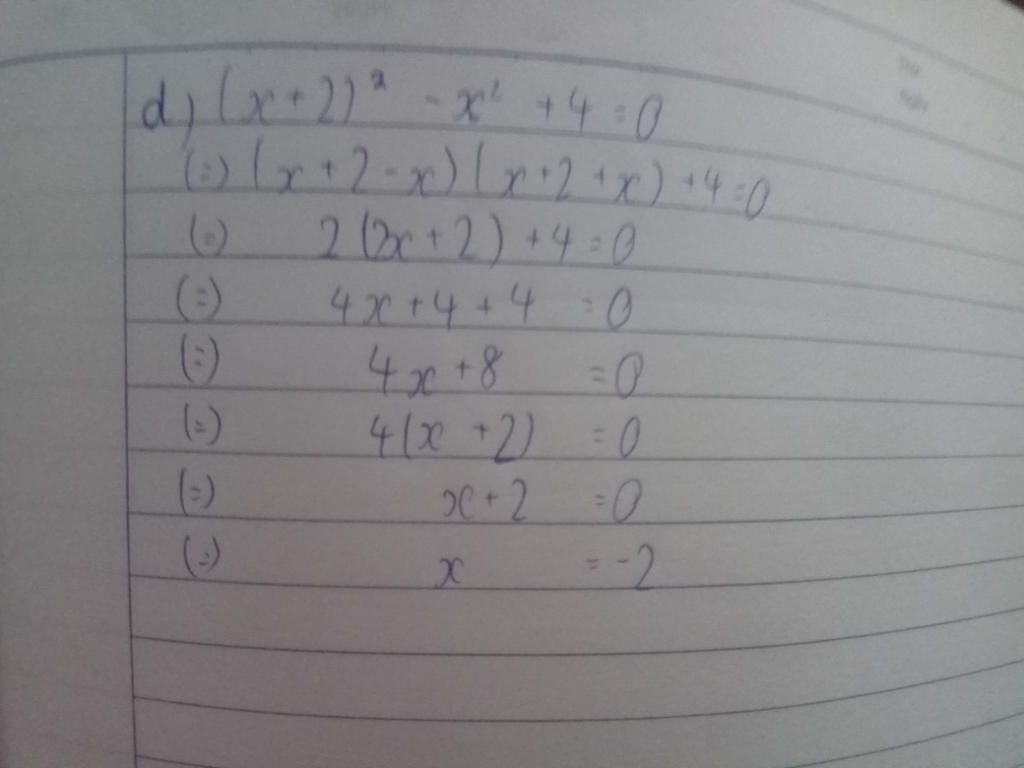 d) (x+2)² - x² + 4 = 0
(=) (x+2-x)(x+2+x) +4=0
(=) 2(2x+2) +4=0
(=) 4x+4+4 =0
(=) 4x+8 =0
(=) 4(x+2) =0
(=) x+2 =0
(=) x =-2